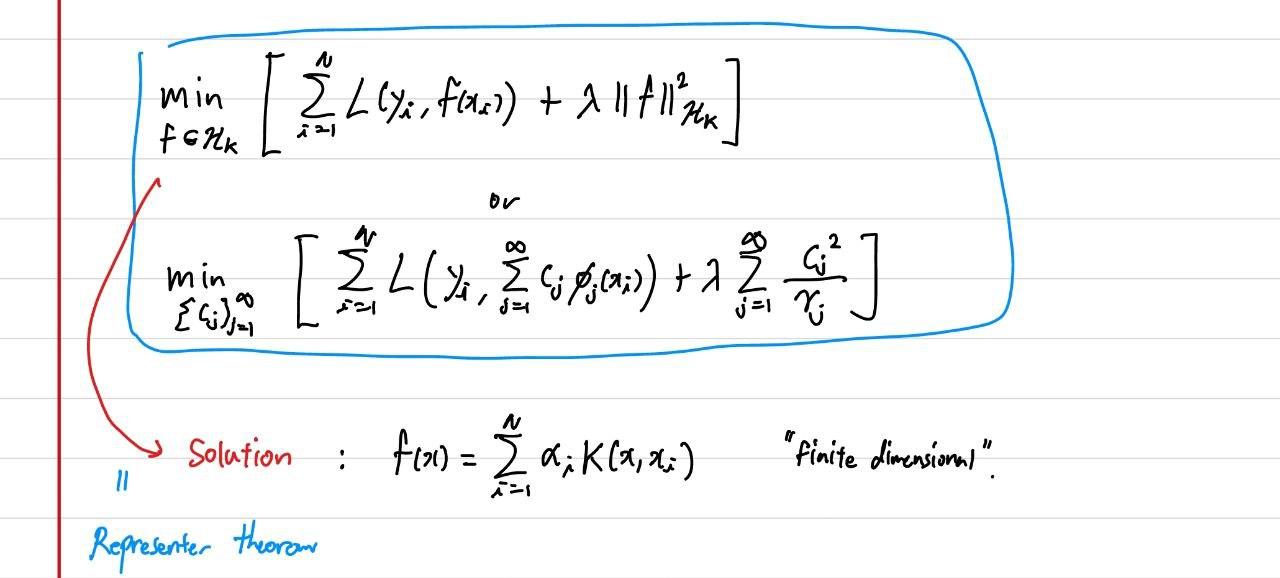 min f∈ℋ_K [ Σ_{i=1}^{N} L(y_i, f(x_i)) + λ ‖f‖²_{ℋ_K} ]
or
min {c_j}_{j=1}^{∞} [ Σ_{i=1}^{N} L(y_i, Σ_{j=1}^{∞} c_j φ_j(x_i)) + λ Σ_{j=1}^{∞} c_j²/γ_j ]
Solution : f(x) = Σ_{i=1}^{N} α_i K(x, x_i) "finite dimensional".
||
Representer theorem